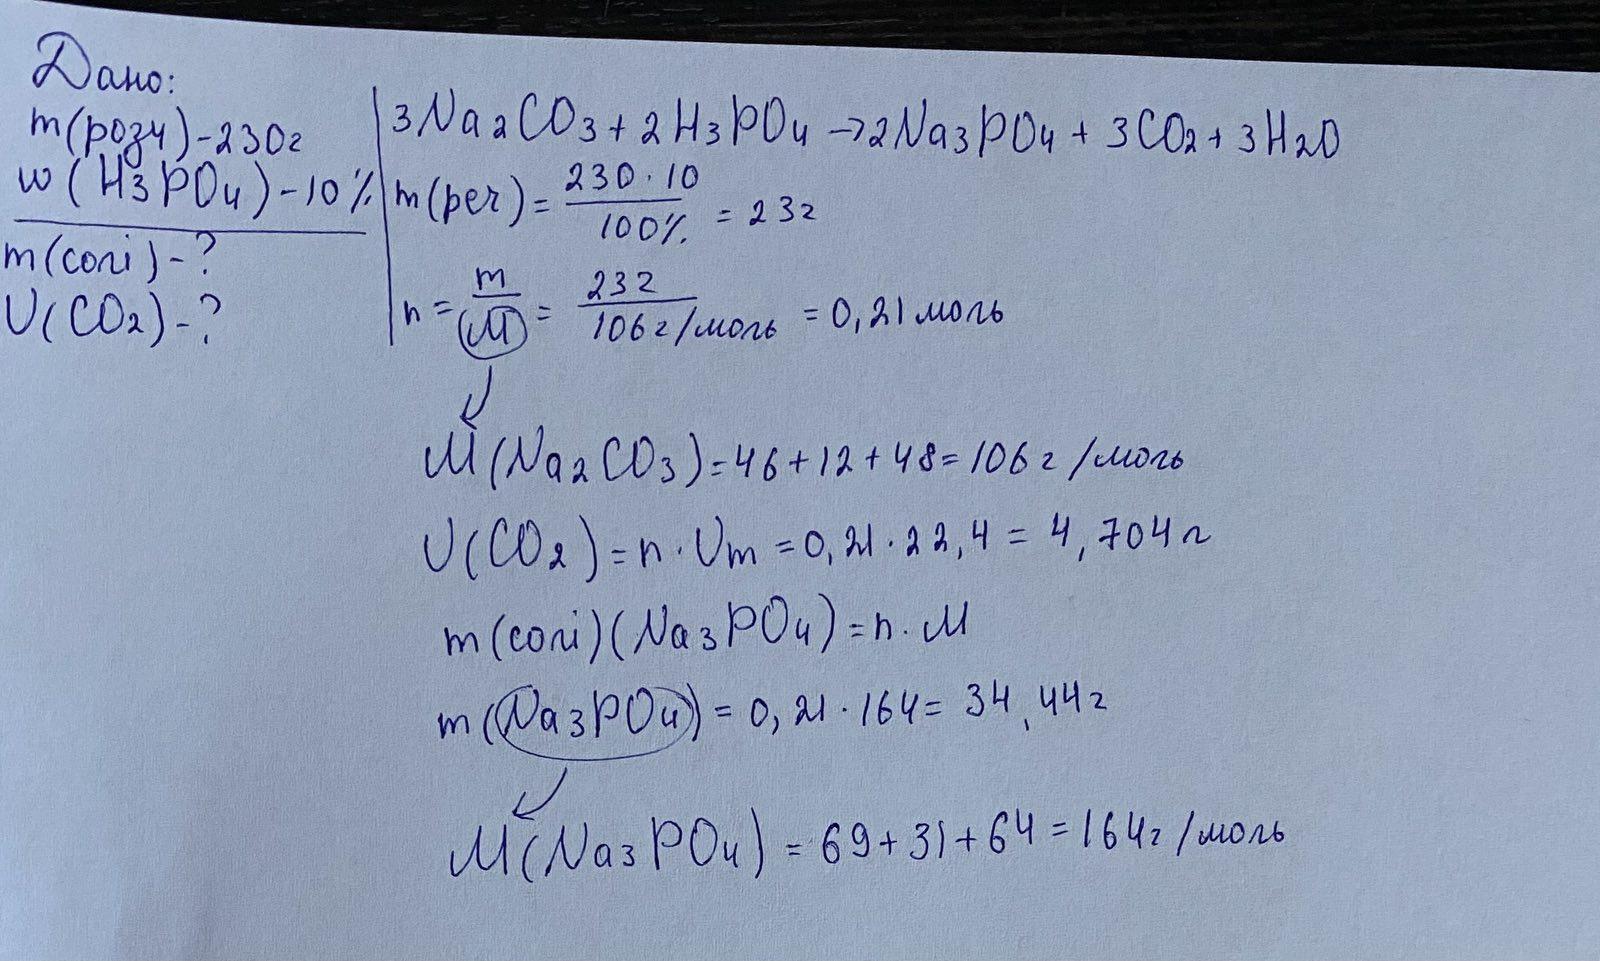 Дано:
m(розч)-230г
w(H3PO4)-10%
m(солі)-?
U(CO2)-?
3Na2CO3+2H3PO4→2Na3PO4+3CO2+3H2O
m(реч)=230·10/100%=23г
n=m/M=23г/106г/моль=0,21моль
M(Na2CO3)=46+12+48=106г/моль
U(CO2)=n·Um=0,21·22,4=4,704л
m(солі)(Na3PO4)=n·M
m(Na3PO4)=0,21·164=34,44г
M(Na3PO4)=69+31+64=164г/моль